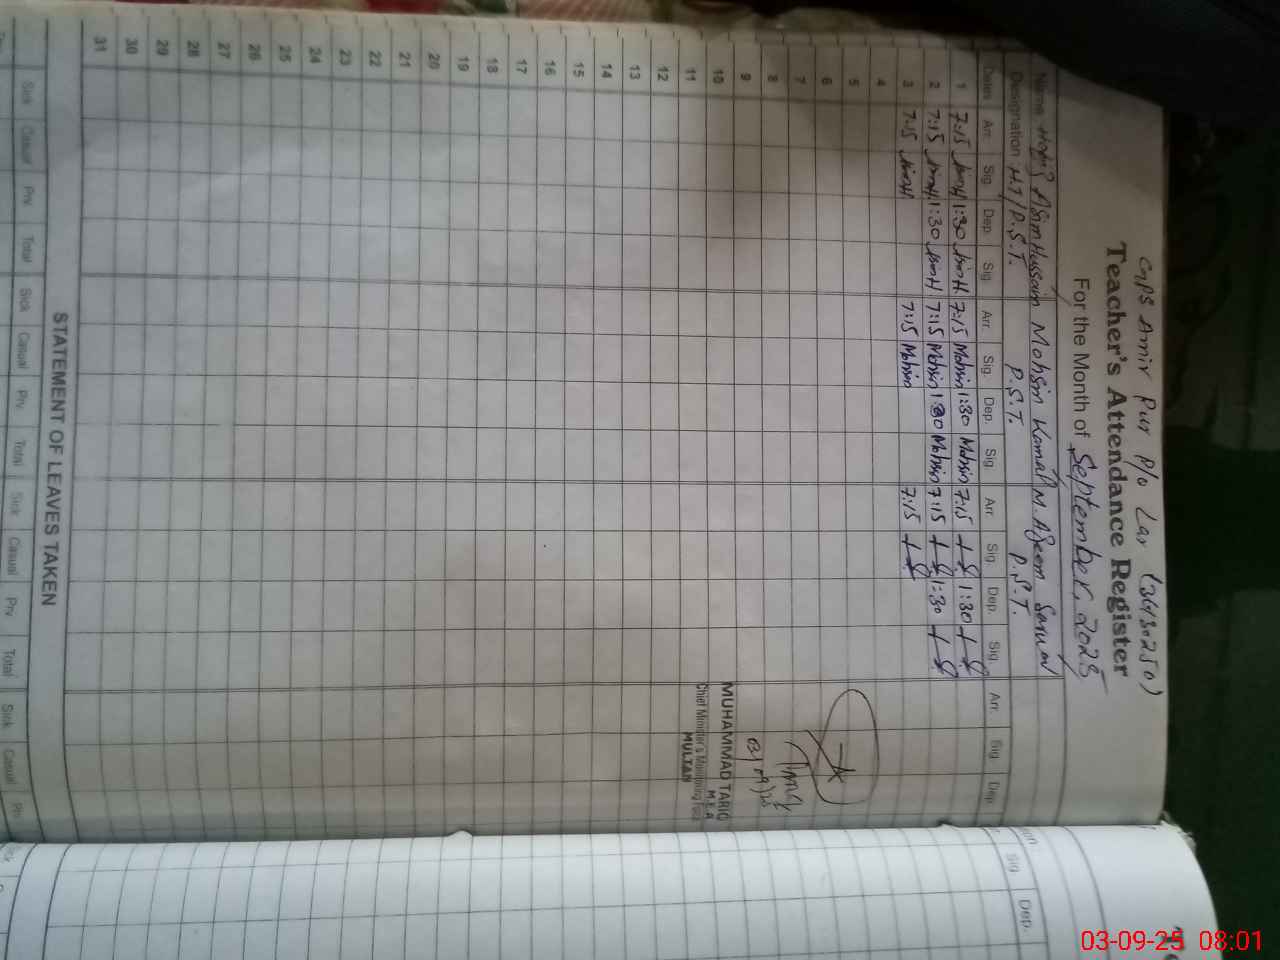 GPS Amir Pur P/o Lar (36430250)
Teacher's Attendance Register
For the Month of September, 2025
Name Hafiz Asim Hussain Mohsin Kamal M. Azeem Sarwar
Designation H.T/P.S.T. P.S.T. P.S.T.
Dates Arr. Sig. Dep. Sig. Arr. Sig. Dep. Sig. Arr. Sig. Dep. Sig. Arr. Sig. Dep.
1 7:15 1:30 7:15 Mohsin 1:30 Mohsin 7:15 1:30
2 7:15 1:30 7:15 Mohsin 1:30 Mohsin 7:15 1:30
3 7:15 7:15 Mohsin 7:15
4
5
6
7
8
9
10
11
12
13
14
15
16
17
18
19
20
21
22
23
24
25
26
27
28
29
30
31
03/09/25
MUHAMMAD TARIQ
M.E.A
Chief Minister's Monitoring Force
MULTAN
STATEMENT OF LEAVES TAKEN
Sick Casual Prv. Total Sick Casual Prv. Total Sick Casual Prv. Total Sick Casual
Sig. Dep.
03-09-25 08:01